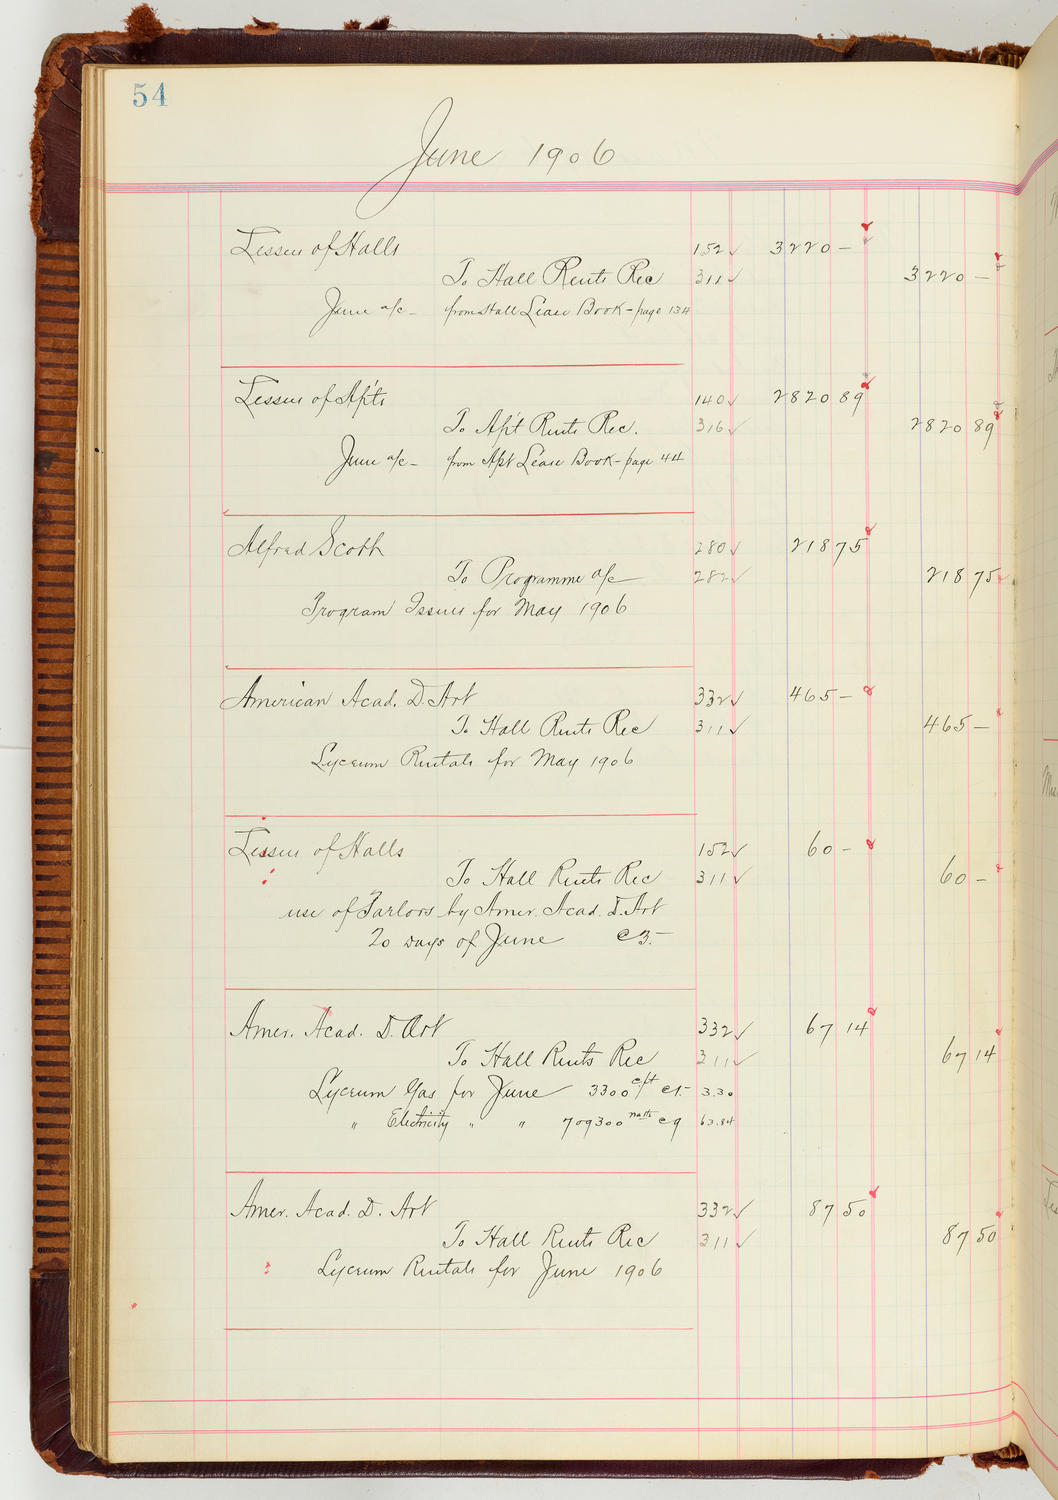 54
June 1906
Lessees of Halls 152 ✓ 3220 –
To Hall Rents Rec 311 ✓ 3220 –
June a/c – from Hall Lease Book – page 134
Lessees of Ap'ts 140 ✓ 2820 89
To Ap't Rents Rec. 316 ✓ 2820 89
June a/c – from Apt Lease Book – page 44
Alfred Scott 280 ✓ 218 75
To Programme a/c 282 ✓ 218 75
Program Issues for May 1906
American Acad. D. Art 332 ✓ 465 –
To Hall Rents Rec 311 ✓ 465 –
Lyceum Rentals for May 1906
Lessees of Halls 152 ✓ 60 –
To Hall Rents Rec 311 ✓ 60 –
use of Parlors by Amer. Acad. D. Art
20 days of June @ 3.–
Amer. Acad. D. Art 332 ✓ 67 14
To Hall Rents Rec 311 ✓ 67 14
Lyceum Gas for June 3300 c/ft @ 1.– 3.30
" Electricity " " 709300 watts @ 9 63.84
Amer. Acad. D. Art 332 ✓ 87 50
To Hall Rents Rec 311 ✓ 87 50
Lyceum Rentals for June 1906